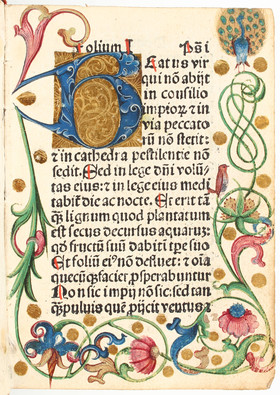 Folium I Pſ i
Eatus vir
qui nõ abijt
in conſilio
impioꝝ ⁊ in
via peccato
rũ nõ ſtetit:
⁊ in cathedra peſtilentie nõ
ſedit. Sed in lege dñi volũ-
tas eius: ⁊ in lege eius medi
tabit̃ die ac nocte. Et erit tã
ꝙ̃ lignum quod plantatum
eſt ſecus decurſus aquarum:
qd̓ fructũ ſuũ dabit ĩ tꝑe ſuo
Et foliũ ei⁹ nõ defluet: ⁊ oĩa
quecũꝙ̃ faciet, ꝓſperabuntur
Non ſic impij nõ ſic: ſed tan
ꝙ̃ puluis quẽ ꝓijcit ventus a